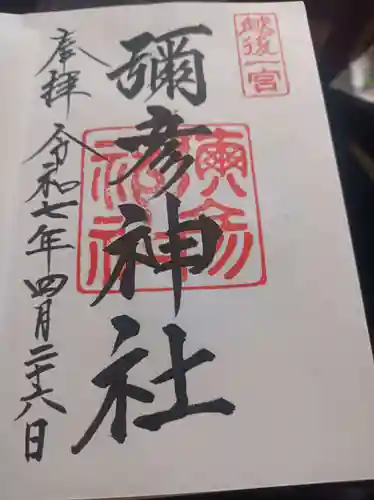 越後一宮
彌彦神社
奉拝
令和七年四月二十六日